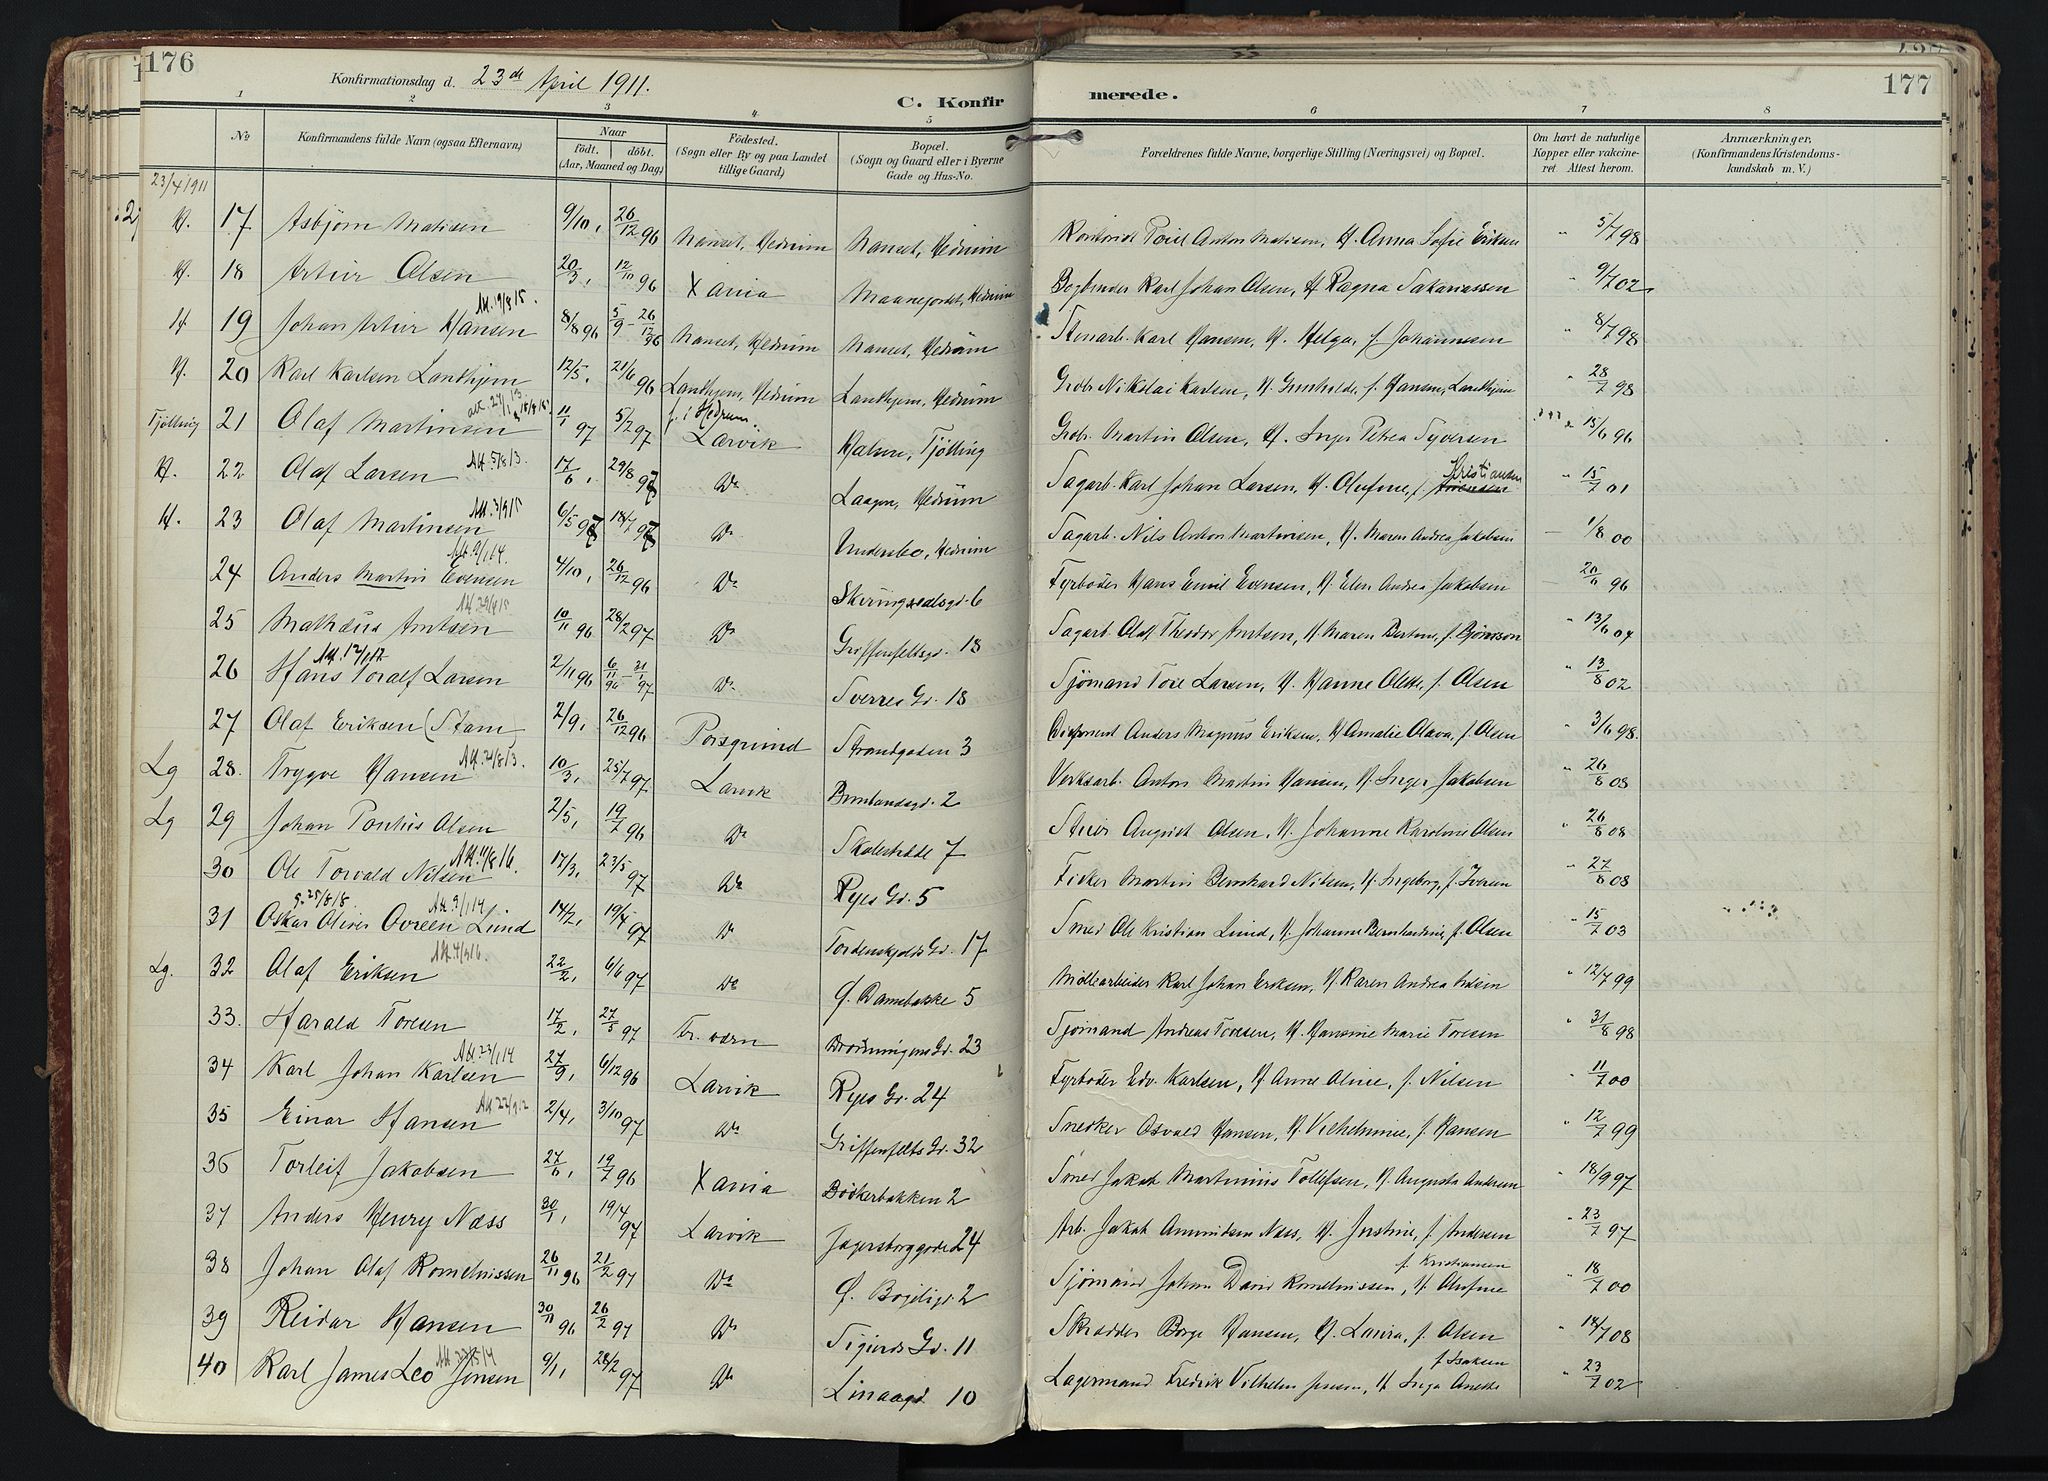 176
Konfirmationsdag d. 23de April 1911.
C. Konfirmerede.
177
1 2 3 4 5 6 7 8
No
Konfirmandens fulde Navn (ogsaa Efternavn)
Naar
födt. döbt.
(Aar, Maaned og Dag)
Födested.
(Sogn eller By og paa Landet
tillige Gaard)
Bopæl.
(Sogn og Gaard eller i Byerne
Gade og Hus-No.
Forældrenes fulde Navne, borgerlige Stilling (Næringsvei) og Bopæl.
Om havt de naturlige
Kopper eller vakcine-
ret Attest herom.
Anmærkninger,
(Konfirmandens Kristendoms-
kundskab m. V.)
23/4 1911
H. 17 Asbjørn Matisen 9/10, 26/12 96 Nanset, Hedrum Nanset, Hedrum Toril Anton Matisen, H. Anna Sofie Eriksen " 5/7 98
H. 18 Artur Olsen 20/3, 12/10 96 Xania Hedrum Bogbinder Karl Johan Olsen, H. Ragna Sakariassen " 9/7 02
Att. 19/8 15.
H. 19 Johan Artur Hansen 8/8 96 5/9 - 26/12 96 Nanset, Hedrum Nanset, Hedrum Stenarb. Karl Hansen, H. Helga, f. Johannessen " 8/7 98
H. 20 Karl Karlsen Lanthjem 12/5, 21/6 96 Lanthjem, Hedrum Lanthjem, Hedrum Grdbr. Nikolai Karlsen, H. f. Hansen, Lanthjem " 28/7 98
f. i Hedrum.
Tjølling 21 Olaf Martinsen 11/1 97 5/2 97 Larvik Tjølling Grdbr. Martin Olsen, H. Inger Petrea Syversen 15/6 96
H. 22 Olaf Larsen Att. 5/8 13. 17/6, 29/8 97 Do Laagen, Hedrum Sagarb. Karl Johan Larsen, H. Olufine, f. Kristiansen " 15/7 01
Att. 3/9 15
H. 23 Olaf Martinsen 6/5 97 18/7 97 Do Hedrum Sagarb. Nils Anton Martinsen, H. Maren Andrea Jakobsen — 1/8 00
24 Anders Martin Evensen 4/10, 26/12 96 Do Skiringssalsgd. 6 Fyrbøder Hans Emil Evensen, H. Elen Andrea Jakobsen — 20/6 96
25 Mathæus Arntsen 10/11 96 28/2 97 Do Griffenfeltsgd. 18 Sagarb. Olaf Theodor Arntsen, H. Maren Bertine, f. Bjørnson " 13/6 04
26 Hans Toralf Larsen 2/11 96 6/11 96 - 31/1 97 Do Sverres Gd. 18 Sjømand Tore Larsen, H. Hanne Olette, f. Olsen " 13/8 02
27 Olaf Eriksen (Stam 2/9, 26/12 96 Porsgrund Strandgaden 3 Anders Magnus Eriksen, H. Amalie Olava, f. Olsen " 3/6 98
Att. 21/8 13.
Lg 28. Trygve Hansen 10/3, 25/7 97 Larvik 2 Verksarb. Anton Martin Hansen, H. Inger Jakobsen " 26/8 08
Lg 29 Johan Pontus Olsen 2/5, 19/7 96 Do Skolestræde 7 August Olsen, H. Johanne Karoline Olsen " 26/8 08
Att. 11/8 16.
30 Ole Torvald Nilsen 17/3, 23/5 97 Do Ryes Gd. 5 Fisker Martin Bernhard Nilsen, H. Ingeborg, f. Iversen " 27/8 08
31 Oskar Oliver Lund 14/2, 19/4 97 Do Tordenskjolds Gd. 17 Smed Ole Kristian Lund, H. Johanne Bernhardine, f. Olsen " 15/7 03
Lg. 32 Olaf Eriksen 22/2, 6/6 97 Do Ø. Damebakke 5 Møllearbeider Karl Johan Eriksen, H. Karen Andrea " 12/7 99
33. Harald Toresen 17/2, 27/5 97 Fr. værn Dronningens Gd. 23 Sjømand Andreas Toresen, H. Hansine Marie Toresen " 31/8 98
Att. 23/1 14
34 Karl Johan Karlsen 27/9, 6/12 96 Larvik Ryes Gd. 24 Fyrbøder Edv. Karlsen, H. Anne Oline, f. Nilsen " 11/7 00
35 Einar Hansen 2/4, 3/10 97 Do Griffenfelts Gd. 32 Snedker Osvald Hansen, H. Vilhelmine, f. Hansen " 12/7 99
36 Torleif Jakobsen 27/6, 19/7 96 Xania Bøkkerbakken 2 Smed Jakob Martinius Tollefsen, H. Augusta Andersen " 18/9 97
37 Anders Henry Næss 30/1, 19/4 97 Larvik 24 Arb. Jakob Næss, H. Justine, f. Andersen " 23/7 97
f. Kristiansen
38 Johan Olaf Romelnissen 26/11 96 21/2 97 Do Ø. Bøgeligd. 2 Sjømand Johan David Romelnissen, H. Olufine " 18/7 00
39 Reidar Hansen 30/11 96 26/2 97 Do Sigurds Gd. 11 Skrædder Borge Hansen, H. Laura, f. Olsen " 18/7 08
f. Isaksen
40 Karl James Leo Jensen 9/1, 28/2 97 Do Linaagd 10 Lagermand Fredrik Vilhelm Jensen, H. Inga Anette " 23/7 02